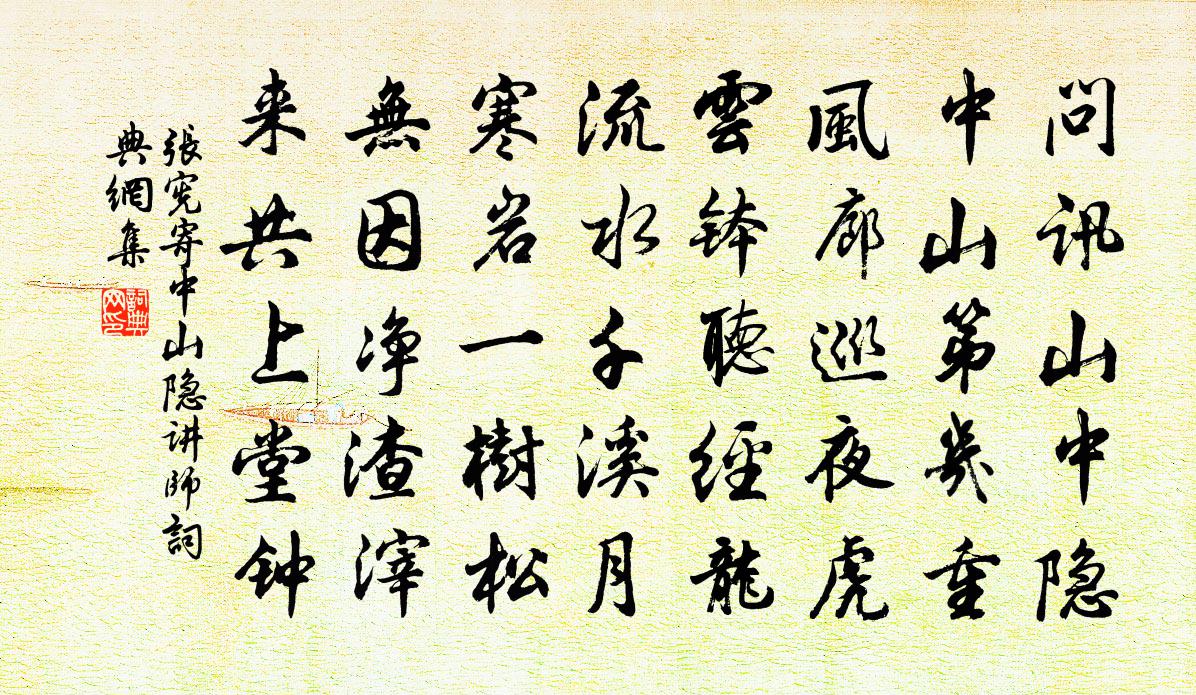 問訊山中隐
中山第幾重
風廊巡夜虎
雲鉢聽經龍
流水千溪月
寒岩一樹松
無因净渣滓
来共上堂钟
張宪寄中山隐讲师詞
典網集
詞典网印